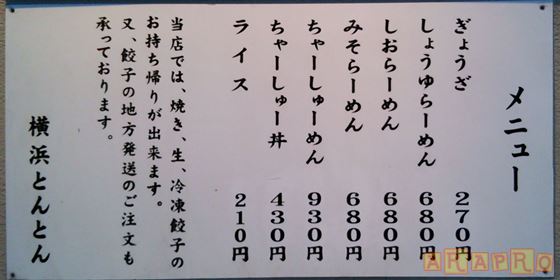 メニュー
ぎょうざ 270円
しょうゆらーめん 680円
しおらーめん 680円
みそらーめん 680円
ちゃーしゅーめん 930円
ちゃーしゅー丼 430円
ライス 210円
当店では、焼き、生、冷凍餃子の
お持ち帰りが出来ます。
又、餃子の地方発送のご注文も
承っております。
横浜とんとん
ARAPRO